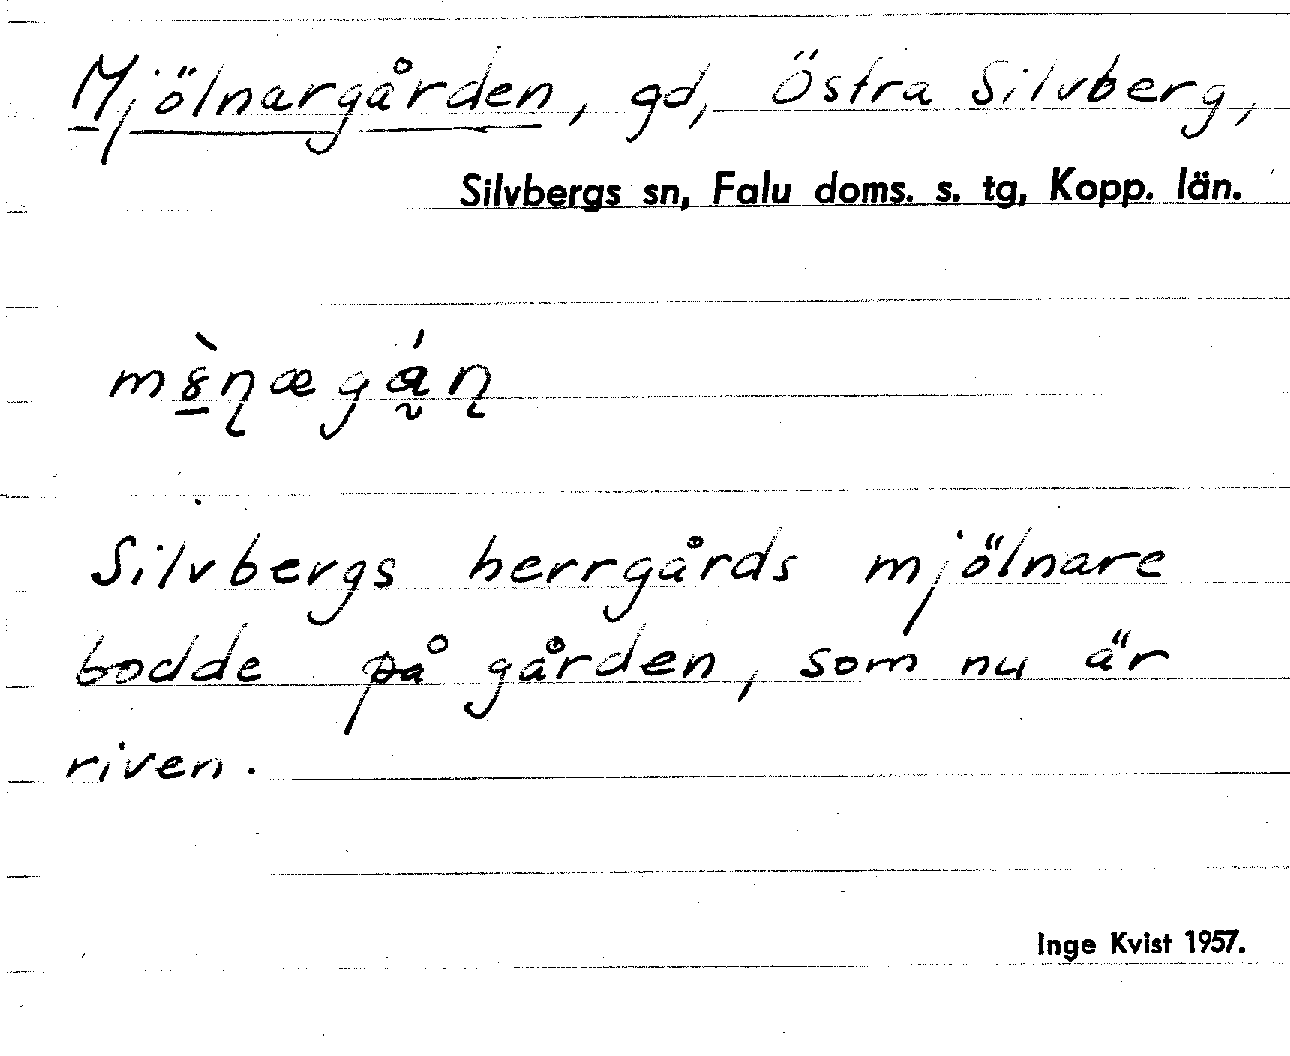 Mjölnargården, gd, Östra Silvberg,
Silvbergs sn, Falu doms. s. tg, Kopp. län.
Silvbergs herrgårds mjölnare
bodde på gården, som nu är
riven.
Inge Kvist 1957.